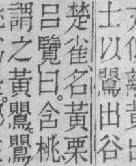 士以鸎出谷
楚雀名黃栗
呂覽曰含桃
謂之黃鸎鸎